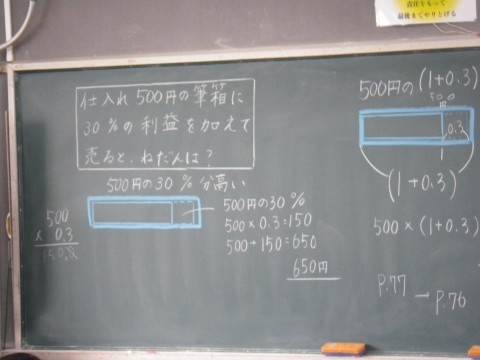 責任をもって
最後までやりとげる
仕入れ500円の筆箱に
30%の利益を加えて
売ると、ねだんは?
500円の30%分高い
500円の30%
500×0.3=150
500+150=650
650円
500
×0.3
150.0
500円の(1+0.3)
500
円
0.3
1
(1+0.3)
500×(1+0.3)
P.77
→P.76